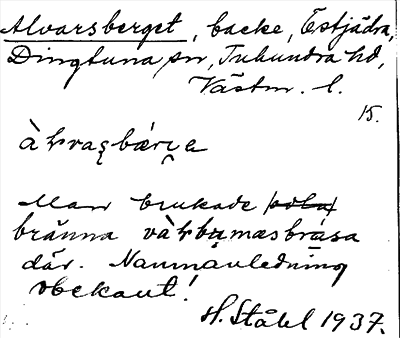 Alvarsberget, backe, Östjädra,
Dingtuna sn, Tuhundra hd,
Västm. l.
15.
àɫvaʂbærɣe
Man brukade (sola)
bränna vàɫbu̩mæsbrása
där. Namnanledning
obekant!
H. Ståhl 1937.